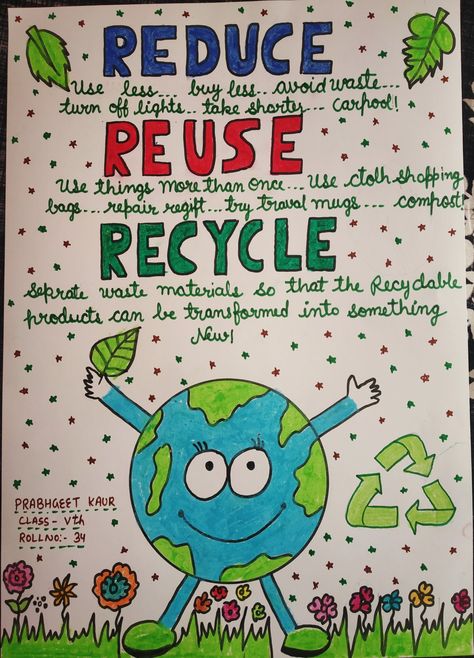 REDUCE
Use less... buy less... avoid waste...
turn off lights... take shorter... carpool!
REUSE
Use things more than once... Use ctolh shopping
bags... repair regift... try traval mugs... compost!
RECYCLE
Seprate waste materials so that the Recydable
products can be transformed into something
New!
PRABHGEET KAUR
CLASS- Vth
ROLLNO:- 34